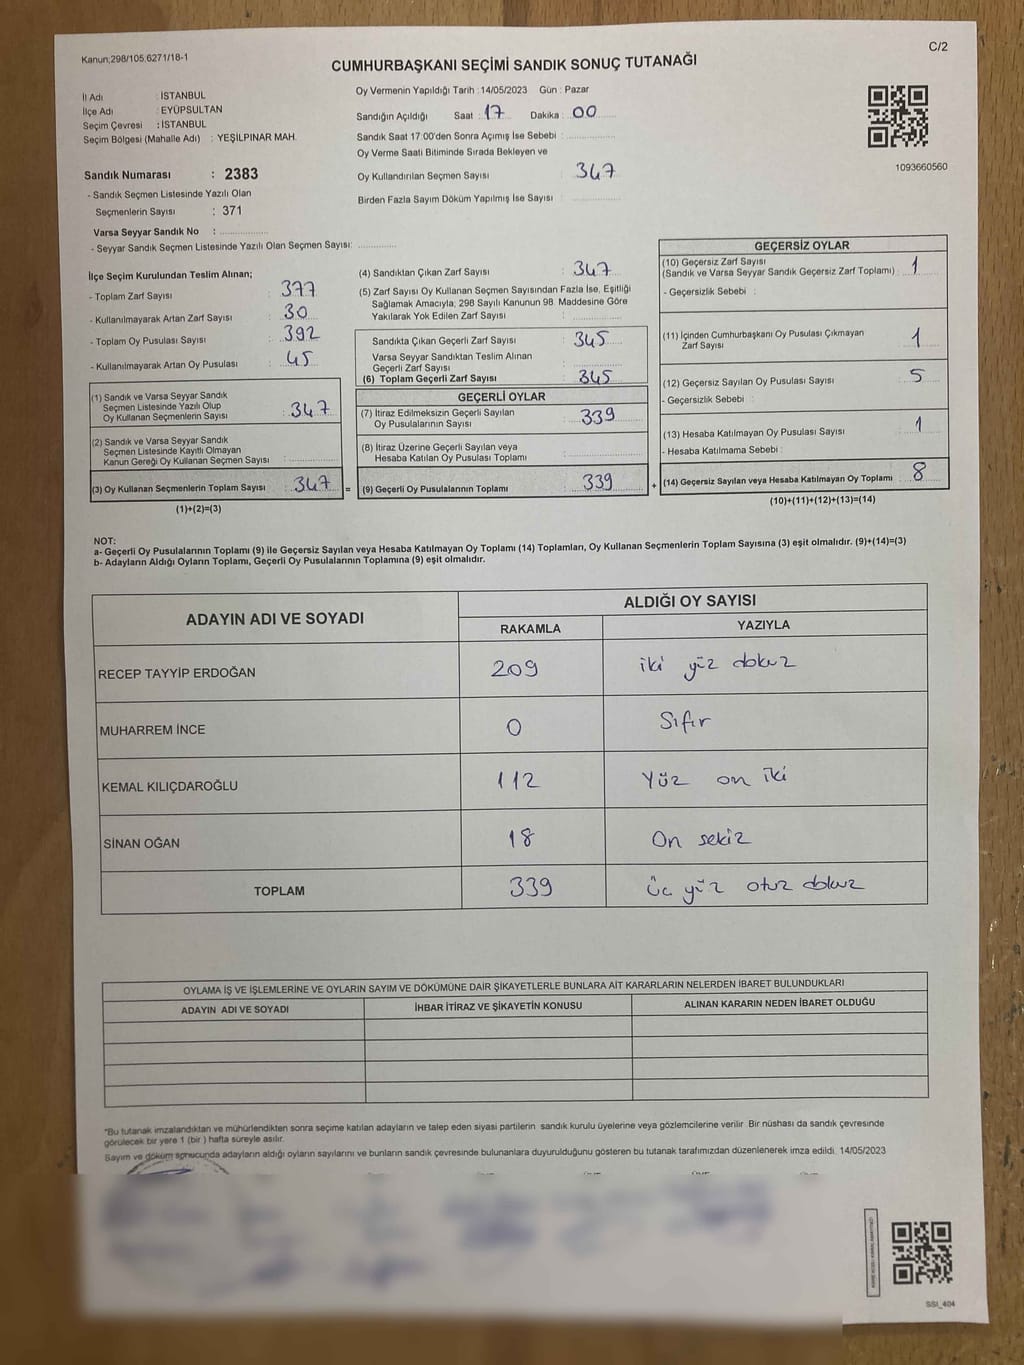 Kanun;298/105,6271/18-1
C/2
CUMHURBAŞKANI SEÇİMİ SANDIK SONUÇ TUTANAĞI
İl Adı : İSTANBUL
İlçe Adı : EYÜPSULTAN
Seçim Çevresi : İSTANBUL
Seçim Bölgesi (Mahalle Adı) : YEŞİLPINAR MAH.
Sandık Numarası : 2383
- Sandık Seçmen Listesinde Yazılı Olan
Seçmenlerin Sayısı : 371
Varsa Seyyar Sandık No :
- Seyyar Sandık Seçmen Listesinde Yazılı Olan Seçmen Sayısı:
Oy Vermenin Yapıldığı Tarih : 14/05/2023 Gün : Pazar
Sandığın Açıldığı Saat : 17 Dakika : 00
Sandık Saat 17:00'den Sonra Açımış İse Sebebi :
Oy Verme Saati Bitiminde Sırada Bekleyen ve
Oy Kullandırılan Seçmen Sayısı : 347
Birden Fazla Sayım Döküm Yapılmış İse Sayısı :
1093660560
İlçe Seçim Kurulundan Teslim Alınan;
- Toplam Zarf Sayısı : 377
- Kullanılmayarak Artan Zarf Sayısı : 30
- Toplam Oy Pusulası Sayısı : 392
- Kullanılmayarak Artan Oy Pusulası : 45
(1) Sandık ve Varsa Seyyar Sandık
Seçmen Listesinde Yazılı Olup
Oy Kullanan Seçmenlerin Sayısı : 347
(2) Sandık ve Varsa Seyyar Sandık
Seçmen Listesinde Kayıtlı Olmayan
Kanun Gereği Oy Kullanan Seçmen Sayısı :
(3) Oy Kullanan Seçmenlerin Toplam Sayısı : 347 =
(1)+(2)=(3)
(4) Sandıktan Çıkan Zarf Sayısı : 347
(5) Zarf Sayısı Oy Kullanan Seçmen Sayısından Fazla İse, Eşitliği
Sağlamak Amacıyla; 298 Sayılı Kanunun 98. Maddesine Göre
Yakılarak Yok Edilen Zarf Sayısı :
Sandıkta Çıkan Geçerli Zarf Sayısı : 345
Varsa Seyyar Sandıktan Teslim Alınan
Geçerli Zarf Sayısı :
(6) Toplam Geçerli Zarf Sayısı : 345
GEÇERLİ OYLAR
(7) İtiraz Edilmeksizin Geçerli Sayılan
Oy Pusulalarının Sayısı : 339
(8) İtiraz Üzerine Geçerli Sayılan veya
Hesaba Katılan Oy Pusulası Toplamı :
(9) Geçerli Oy Pusulalarının Toplamı : 339 +
GEÇERSİZ OYLAR
(10) Geçersiz Zarf Sayısı
(Sandık ve Varsa Seyyar Sandık Geçersiz Zarf Toplamı) : 1
- Geçersizlik Sebebi :
(11) İçinden Cumhurbaşkanı Oy Pusulası Çıkmayan
Zarf Sayısı : 1
(12) Geçersiz Sayılan Oy Pusulası Sayısı : 5
- Geçersizlik Sebebi :
(13) Hesaba Katılmayan Oy Pusulası Sayısı : 1
- Hesaba Katılmama Sebebi :
(14) Geçersiz Sayılan veya Hesaba Katılmayan Oy Toplamı : 8
(10)+(11)+(12)+(13)=(14)
NOT:
a- Geçerli Oy Pusulalarının Toplamı (9) ile Geçersiz Sayılan veya Hesaba Katılmayan Oy Toplamı (14) Toplamları, Oy Kullanan Seçmenlerin Toplam Sayısına (3) eşit olmalıdır. (9)+(14)=(3)
b- Adayların Aldığı Oyların Toplamı, Geçerli Oy Pusulalarının Toplamına (9) eşit olmalıdır.
ADAYIN ADI VE SOYADI
ALDIĞI OY SAYISI
RAKAMLA YAZIYLA
RECEP TAYYİP ERDOĞAN 209 iki yüz dokuz
MUHARREM İNCE 0 Sıfır
KEMAL KILIÇDAROĞLU 112 Yüz on iki
SİNAN OĞAN 18 On sekiz
TOPLAM 339 üç yüz otuz dokuz
OYLAMA İŞ VE İŞLEMLERİNE VE OYLARIN SAYIM VE DÖKÜMÜNE DAİR ŞİKAYETLERLE BUNLARA AİT KARARLARIN NELERDEN İBARET BULUNDUKLARI
ADAYIN ADI VE SOYADI İHBAR İTİRAZ VE ŞİKAYETİN KONUSU ALINAN KARARIN NEDEN İBARET OLDUĞU
*Bu tutanak imzalandıktan ve mühürlendikten sonra seçime katılan adayların ve talep eden siyasi partilerin sandık kurulu üyelerine veya gözlemcilerine verilir. Bir nüshası da sandık çevresinde
görülecek bir yere 1 (bir ) hafta süreyle asılır.
Sayım ve döküm sonucunda adayların aldığı oyların sayılarını ve bunların sandık çevresinde bulunanlara duyurulduğunu gösteren bu tutanak tarafımızdan düzenlenerek imza edildi. 14/05/2023
SSI_404